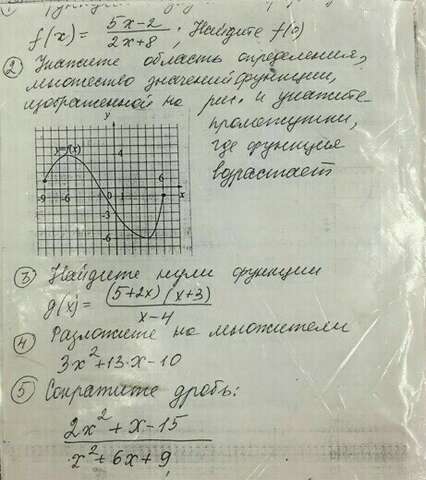 f(x) = (5x-2)/(2x+8); Найдите f(3)
② Укажите область определения,
множество значений функции,
изображенной на рис. и укажите
промежутки,
где функция
возрастает
y
y=f(x)
4
-9 -6 -1 0 1 6 x
-3
-6
③ Найдите нули функции
g(x) = (5+2x)(x+3)/(x-4)
④ Разложите на множители
3x²+13·x-10
⑤ Сократите дробь:
(2x²+x-15)/(x²+6x+9)